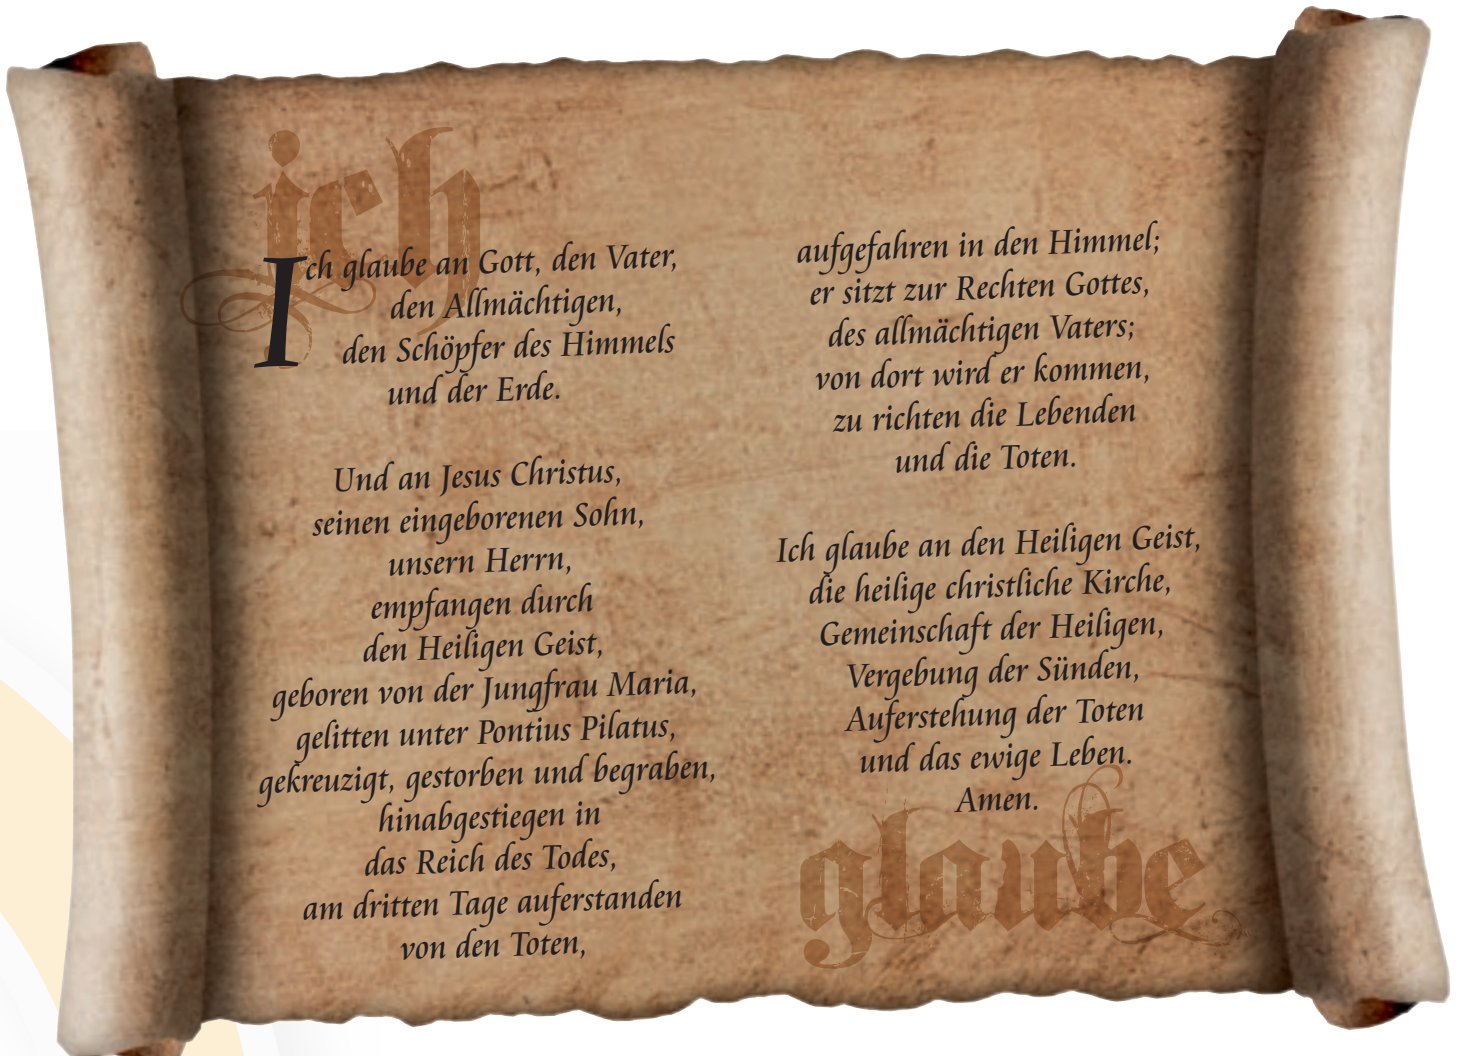 ich
Ich glaube an Gott, den Vater,
den Allmächtigen,
den Schöpfer des Himmels
und der Erde.
Und an Jesus Christus,
seinen eingeborenen Sohn,
unsern Herrn,
empfangen durch
den Heiligen Geist,
geboren von der Jungfrau Maria,
gelitten unter Pontius Pilatus,
gekreuzigt, gestorben und begraben,
hinabgestiegen in
das Reich des Todes,
am dritten Tage auferstanden
von den Toten,
aufgefahren in den Himmel;
er sitzt zur Rechten Gottes,
des allmächtigen Vaters;
von dort wird er kommen,
zu richten die Lebenden
und die Toten.
Ich glaube an den Heiligen Geist,
die heilige christliche Kirche,
Gemeinschaft der Heiligen,
Vergebung der Sünden,
Auferstehung der Toten
und das ewige Leben.
Amen.
glaube